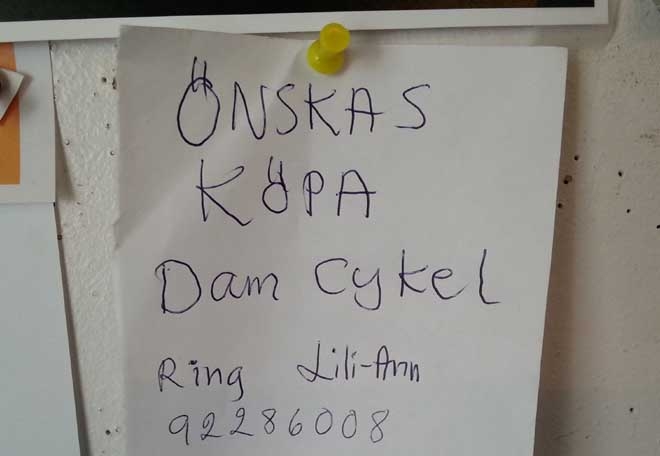 ÖNSKAS
KÖPA
Dam Cykel
Ring Lili-Ann
92286008